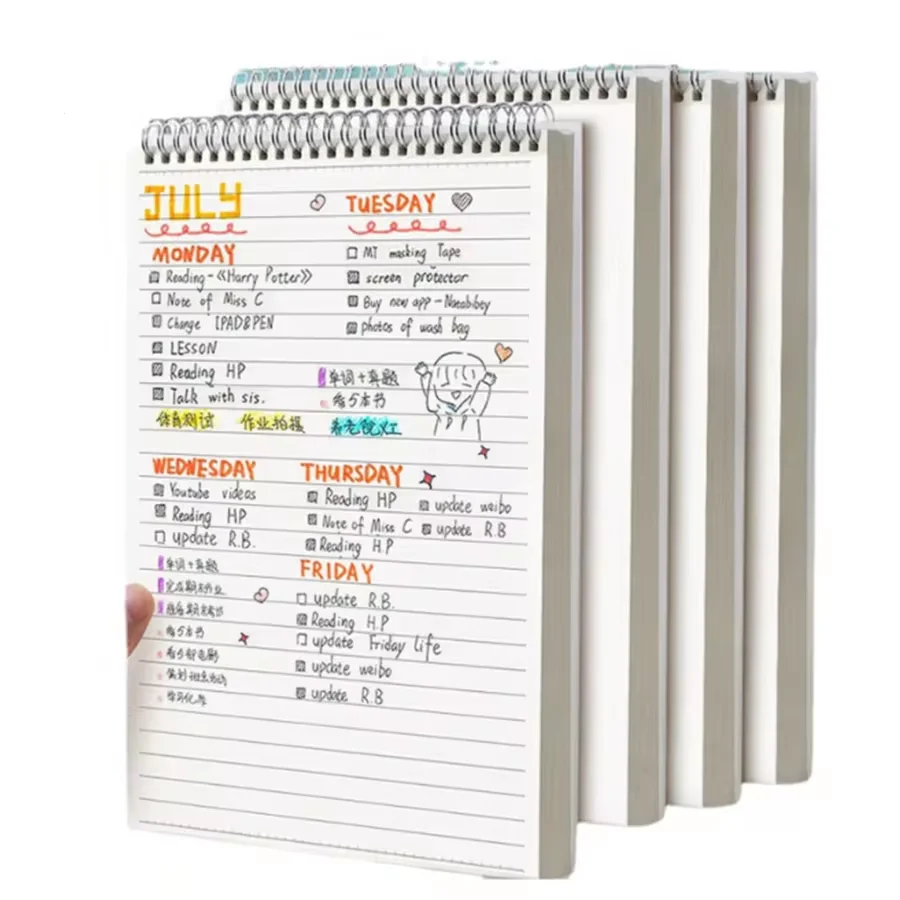 JULY
MONDAY
Reading-《Harry Potter》
Note of Miss C
Change IPAD&PEN
LESSON
Reading HP
Talk with sis.
体育测试 作业拍摄
TUESDAY
MT masking Tape
screen protector
Buy new app-Naeabibey
photos of wash bag
单词+真题
看5本书
WEDNESDAY
Youtube videos
Reading HP
update R.B.
单词+真题
完成期末作业
看5本书
看5部电影
策划班级活动
学习化学
THURSDAY
Reading HP
Note of Miss C
Reading H.P
update weibo
update R.B
FRIDAY
update R.B.
Reading H.P
update Friday life
update weibo
update R.B